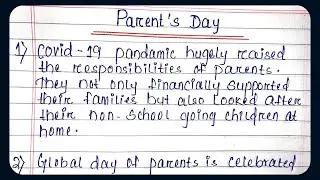 Parent's Day
1) Covid-19 pandamic hugely raised
the responsibilities of parents.
They not only financially supported
their families but also looked after
their non-school going children at
home.
2) Global day of parents is celebrated